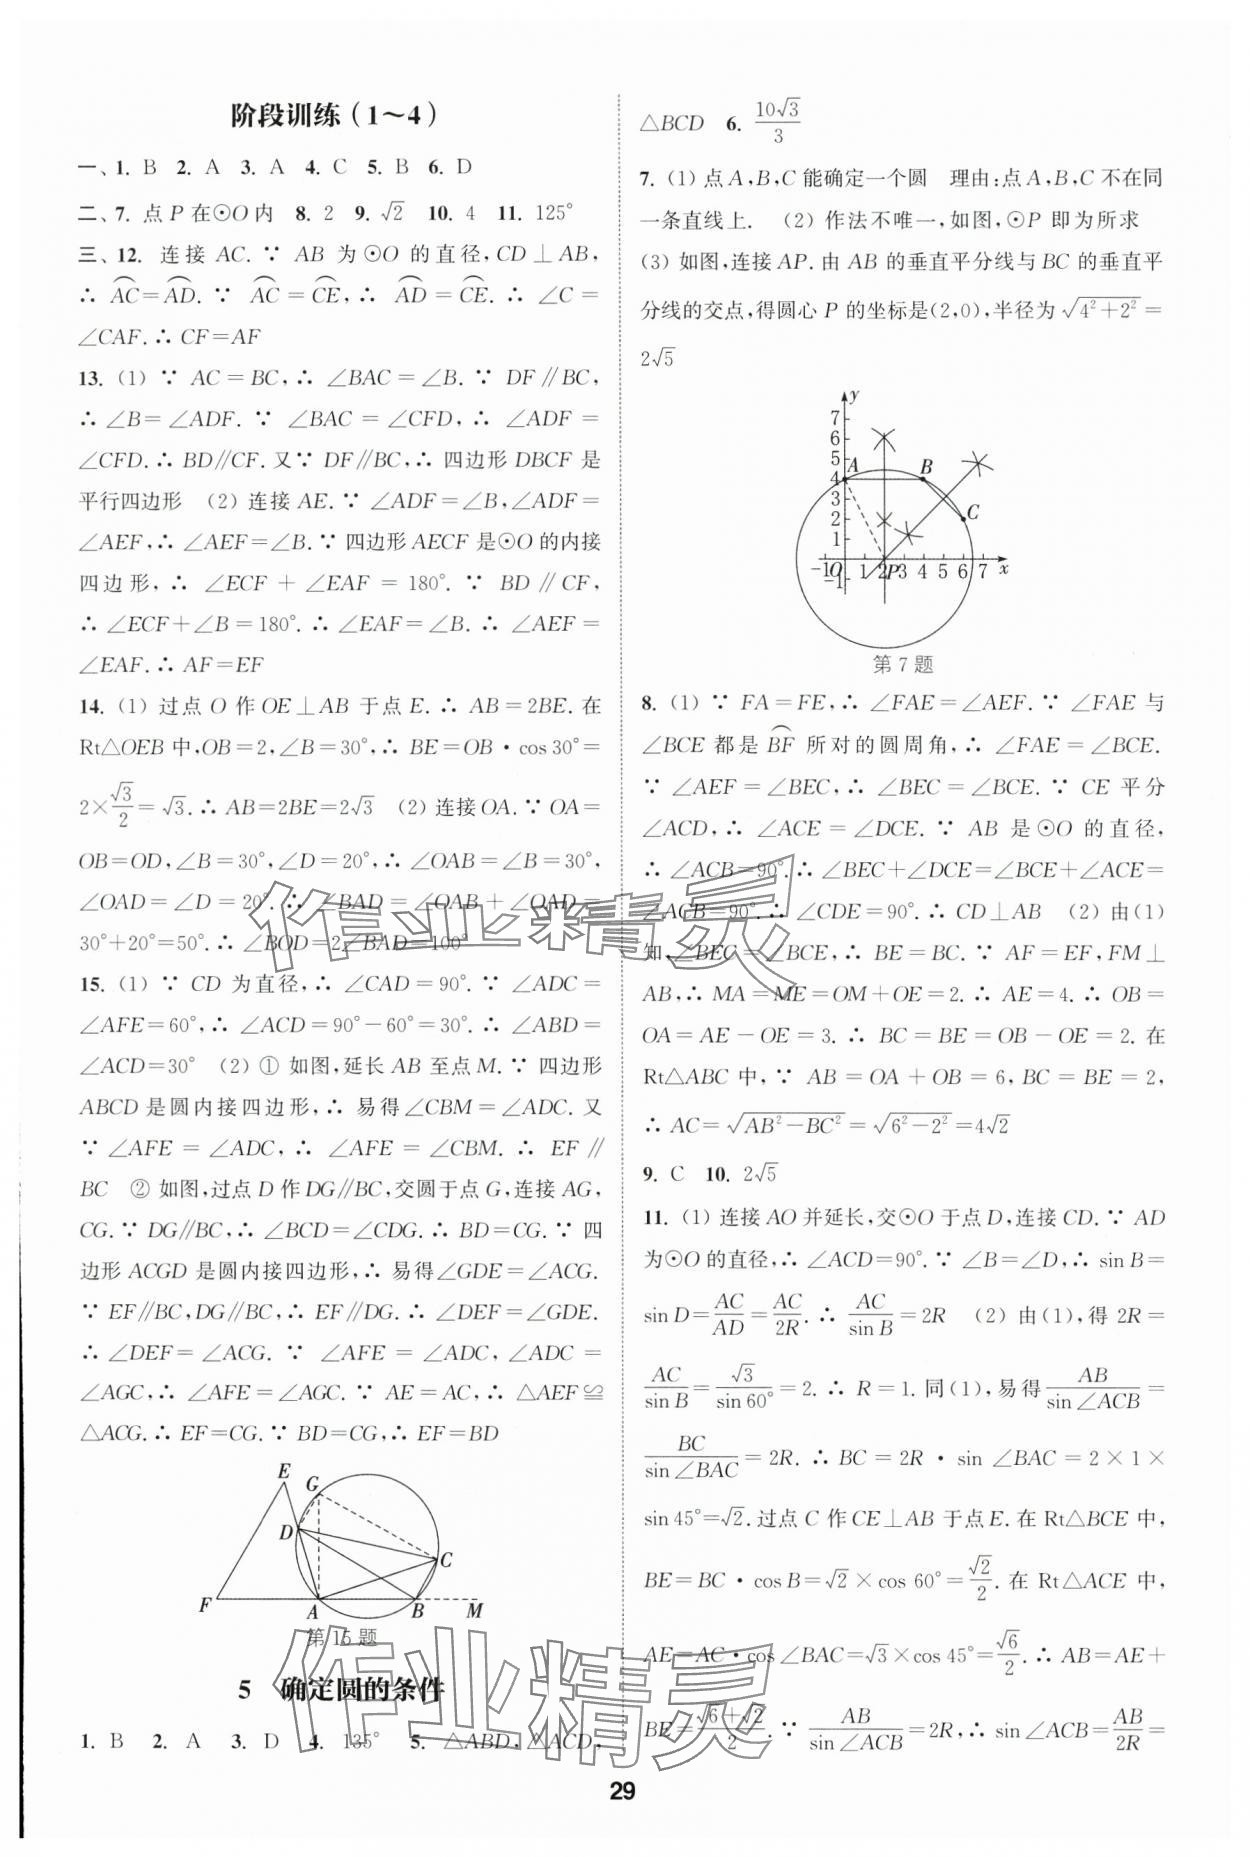 阶段训练(1～4)
一、1. B 2. A 3. A 4. C 5. B 6. D
二、7. 点P在⊙O内 8. 2 9. √2 10. 4 11. 125°
三、12. 连接 AC. ∵ AB 为⊙O 的直径,CD⊥AB,
∴ A͡C=A͡D. ∵ A͡C=C͡E,∴ A͡D=C͡E. ∴ ∠C=
∠CAF. ∴ CF=AF
13. (1) ∵ AC=BC,∴ ∠BAC=∠B. ∵ DF∥BC,
∴ ∠B=∠ADF. ∵ ∠BAC=∠CFD,∴ ∠ADF=
∠CFD. ∴ BD∥CF. 又∵ DF∥BC,∴ 四边形 DBCF 是
平行四边形 (2) 连接 AE. ∵ ∠ADF=∠B,∠ADF=
∠AEF,∴ ∠AEF=∠B. ∵ 四边形AECF是⊙O的内接
四边形,∴ ∠ECF+∠EAF=180°. ∵ BD∥CF,
∴ ∠ECF+∠B=180°. ∴ ∠EAF=∠B. ∴ ∠AEF=
∠EAF. ∴ AF=EF
14. (1) 过点 O 作OE⊥AB 于点 E. ∴ AB=2BE. 在
Rt△OEB中,OB=2,∠B=30°,∴ BE=OB·cos30°=
2×√3/2=√3. ∴ AB=2BE=2√3 (2) 连接OA. ∵ OA=
OB=OD,∠B=30°,∠D=20°,∴ ∠OAB=∠B=30°,
∠OAD=∠D=20°. ∴ ∠BAD=∠OAB+∠OAD=
30°+20°=50°. ∴ ∠BOD=2∠BAD=100°
15. (1) ∵ CD 为直径,∴ ∠CAD=90°. ∵ ∠ADC=
∠AFE=60°,∴ ∠ACD=90°-60°=30°. ∴ ∠ABD=
∠ACD=30° (2) ① 如图,延长 AB 至点 M. ∵ 四边形
ABCD是圆内接四边形,∴ 易得∠CBM=∠ADC. 又
∵ ∠AFE=∠ADC,∴ ∠AFE=∠CBM. ∴ EF∥
BC ② 如图,过点 D 作DG∥BC,交圆于点G,连接AG,
CG. ∵ DG∥BC,∴ ∠BCD=∠CDG. ∴ BD=CG. ∵ 四
边形 ACGD 是圆内接四边形,∴ 易得∠GDE=∠ACG.
∵ EF∥BC,DG∥BC,∴ EF∥DG. ∴ ∠DEF=∠GDE.
∴ ∠DEF=∠ACG. ∵ ∠AFE=∠ADC,∠ADC=
∠AGC,∴ ∠AFE=∠AGC. ∵ AE=AC,∴ △AEF≌
△ACG. ∴ EF=CG. ∵ BD=CG,∴ EF=BD
E
G
D
C
F
A
B
M
第15题
5 确定圆的条件
1. B 2. A 3. D 4. 135° 5. △ABD,△ACD,
△BCD 6. 10√3/3
7. (1) 点A,B,C能确定一个圆 理由:点A,B,C不在同
一条直线上. (2) 作法不唯一,如图,⊙P 即为所求
(3) 如图,连接AP. 由 AB 的垂直平分线与BC 的垂直平
分线的交点,得圆心 P 的坐标是(2,0),半径为√(4²+2²)=
2√5
y
7
6
5
4
3
2
1
-1
A
B
C
-1 O 1 2 P 3 4 5 6 7 x
第7题
8. (1) ∵ FA=FE,∴ ∠FAE=∠AEF. ∵ ∠FAE 与
∠BCE 都是 B͡F 所对的圆周角,∴ ∠FAE=∠BCE.
∵ ∠AEF=∠BEC,∴ ∠BEC=∠BCE. ∵ CE 平分
∠ACD,∴ ∠ACE=∠DCE. ∵ AB 是⊙O 的直径,
∴ ∠ACB=90°. ∴ ∠BEC+∠DCE=∠BCE+∠ACE=
∠ACB=90°. ∴ ∠CDE=90°. ∴ CD⊥AB (2) 由(1)
知,∠BEC=∠BCE,∴ BE=BC. ∵ AF=EF,FM⊥
AB,∴ MA=ME=OM+OE=2. ∴ AE=4. ∴ OB=
OA=AE-OE=3. ∴ BC=BE=OB-OE=2. 在
Rt△ABC 中,∵ AB=OA+OB=6,BC=BE=2,
∴ AC=√(AB²-BC²)=√(6²-2²)=4√2
9. C 10. 2√5
11. (1) 连接AO并延长,交⊙O于点D,连接CD. ∵ AD
为⊙O的直径,∴ ∠ACD=90°. ∵ ∠B=∠D,∴ sin B=
sin D=AC/AD=AC/2R. ∴ AC/sin B=2R (2) 由(1),得 2R=
AC/sin B=√3/sin 60°=2. ∴ R=1. 同(1),易得AB/sin∠ACB=
BC/sin∠BAC=2R. ∴ BC=2R·sin∠BAC=2×1×
sin 45°=√2. 过点 C 作CE⊥AB 于点E. 在 Rt△BCE 中,
BE=BC·cos B=√2×cos 60°=√2/2. 在 Rt△ACE 中,
AE=AC·cos∠BAC=√3×cos 45°=√6/2. ∴ AB=AE+
BE=(√6+√2)/2. ∵ AB/sin∠ACB=2R,∴ sin∠ACB=AB/2R=
29
作业精灵
作业精灵